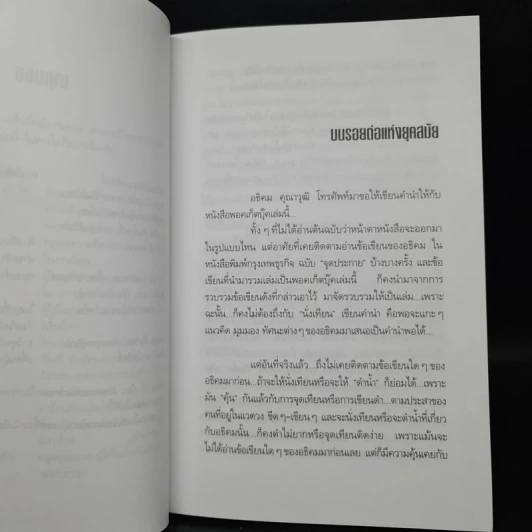 บนรอยต่อแห่งยุคสมัย
อธิคม คุณาวุฒิ โทรศัพท์มาขอให้เขียนคำนำให้กับ
หนังสือพอคเก็ตบุ๊คเล่มนี้...
ทั้ง ๆ ที่ไม่ได้อ่านต้นฉบับว่าหน้าตาหนังสือจะออกมา
ในรูปแบบไหน แต่อาศัยที่เคยติดตามอ่านข้อเขียนของอธิคม ใน
หนังสือพิมพ์กรุงเทพธุรกิจ ฉบับ “จุดประกาย” บ้างบางครั้ง และข้อ
เขียนที่นำมารวมเล่มเป็นพอคเก็ตบุ๊คเล่มนี้ ก็คงนำมาจากการ
รวบรวมข้อเขียนดังที่กล่าวเอาไว้ มาจัดรวบรวมให้เป็นเล่ม...เพราะ
ฉะนั้น...ก็คงไม่ต้องถึงกับ “นั่งเทียน” เขียนคำนำ คือพอจะแกะ ๆ
แนวคิด มุมมอง ทัศนะต่างๆ ของอธิคมมาเสนอเป็นคำนำพอได้...
แต่อันที่จริงแล้ว...ถึงไม่เคยติดตามข้อเขียนใด ๆ ของ
อธิคมมาก่อน...ถ้าจะให้นั่งเทียนหรือจะให้ “ดำน้ำ” ก็ย่อมได้...เพราะ
มัน “คุ้น” กันแล้วกับการจุดเทียนหรือการเขียนดำ...ตามประสาของ
คนที่อยู่ในแวดวง ขีดๆ-เขียนๆ และจะนั่งเทียนหรือจะดำน้ำที่เกี่ยว
กับอธิคมนั้น...ก็คงดำไม่ยากหรือจุดเทียนติดง่าย เพราะแม้นจะ
ไม่ได้อ่านข้อเขียนใด ๆ ของอธิคมมาก่อนเลย แต่ก็มีความคุ้นเคยกับ